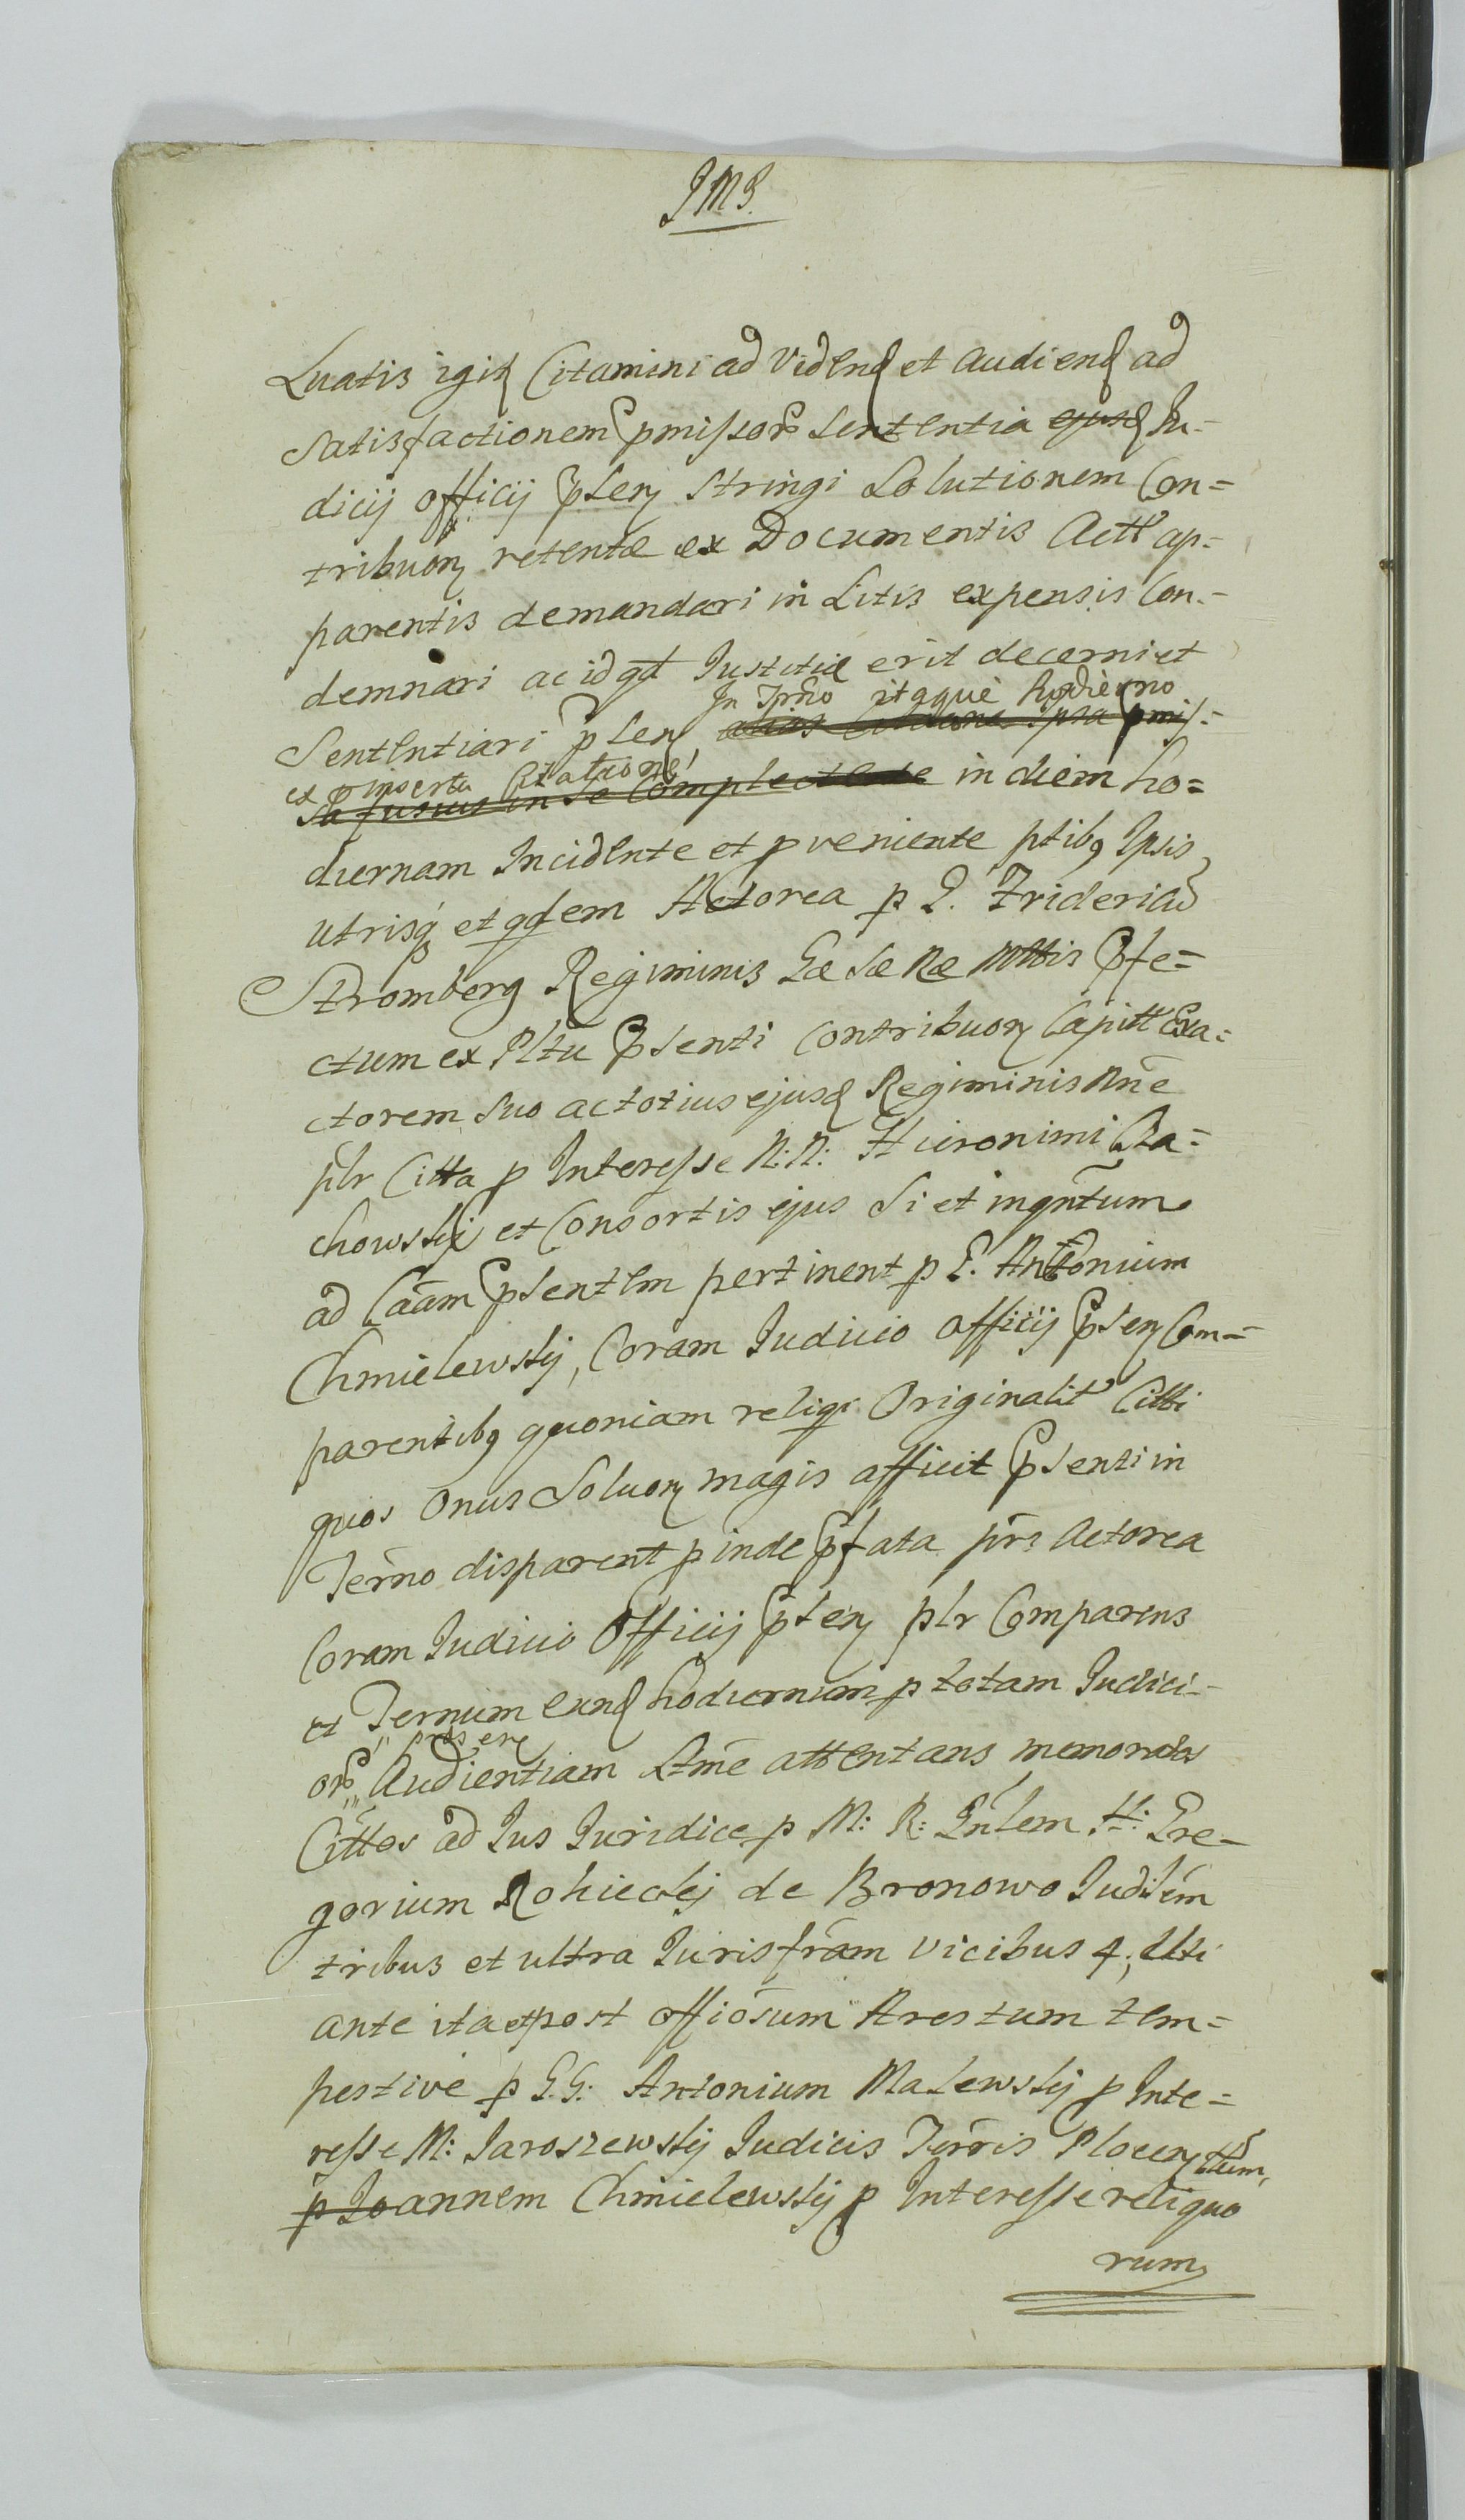 JMJ.
Luatis igitę Citamini ad Vidend et Audiend ad
Satisfactionem pmissor Sententia ejusd Ju-
dicij officij pseny Stringi Solutionem Con=
tribuony retentæ ex Documentis Actt ap=
parentis demandari in Litis expensis Con-
demnari ac id qd Justitiæ erit decerni et
In Trno itaque hodierno
Sententiari pseny alias Citatione ipsa pmis-
ex pinserta Citatione
sa fusius in se Complectente in diem ho=
diernam Incidente et pveniente ptibq Ipsis
utrisq et qdem Actorea p G. Fridericu
Stromberg Regiminis Sæ Sæ Ræ Mttis Pfe=
ctum ex Pltu Psenti Contribuony Capitt Exa=
ctorem Suo ac totius ejusd Regiminis Nne
plr Citta p Interesse N: N: Hieronimi
chowskij et Consortis ejus Si et inqntum
ad Caam Psentem pertinent p G. Antonium
Chmielewskij, Coram Judicio officij Pseny Com=
parentibq quoniam reliqi Originalit Citti
quos Onus Soluony magis afficit Psenti in
Termo disparent pinde Pfata prs Actorea
Coram Judicio Officij Pseny plr Comparens
et Termum eund hodiernum p totam Judici-
or Audientiam Ltme attentans memoratos
Cittos ad Jus Juridice p M: R: Gnlem tt: Gre-
gorium Rokickij de Bronowo Judilem
tribus et ultra Juris fram vicibus 4; Uti
ante ita et post offiosum Arestum tem=
pestive p G.G: Antonium Malewskij p Inte=
resse M: Jaroszewskij Judicis Trris Ploceny tum,
p Joannem Chmielewskij p Interesse reliquo
rum